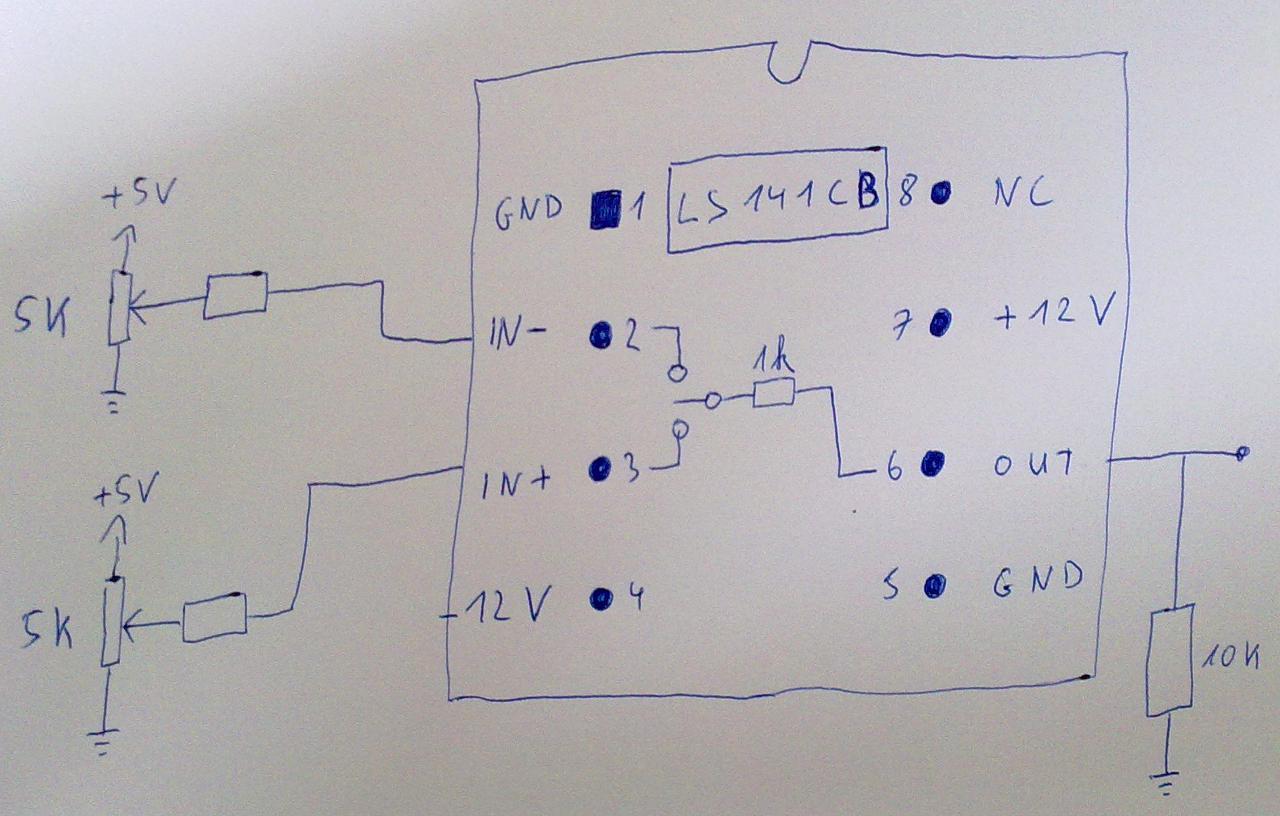 +5V
5K
+5V
5K
GND 1 LS141CB 8 NC
IN- 2 7 +12V
1k
IN+ 3 6 OUT
-12V 4 5 GND
10K